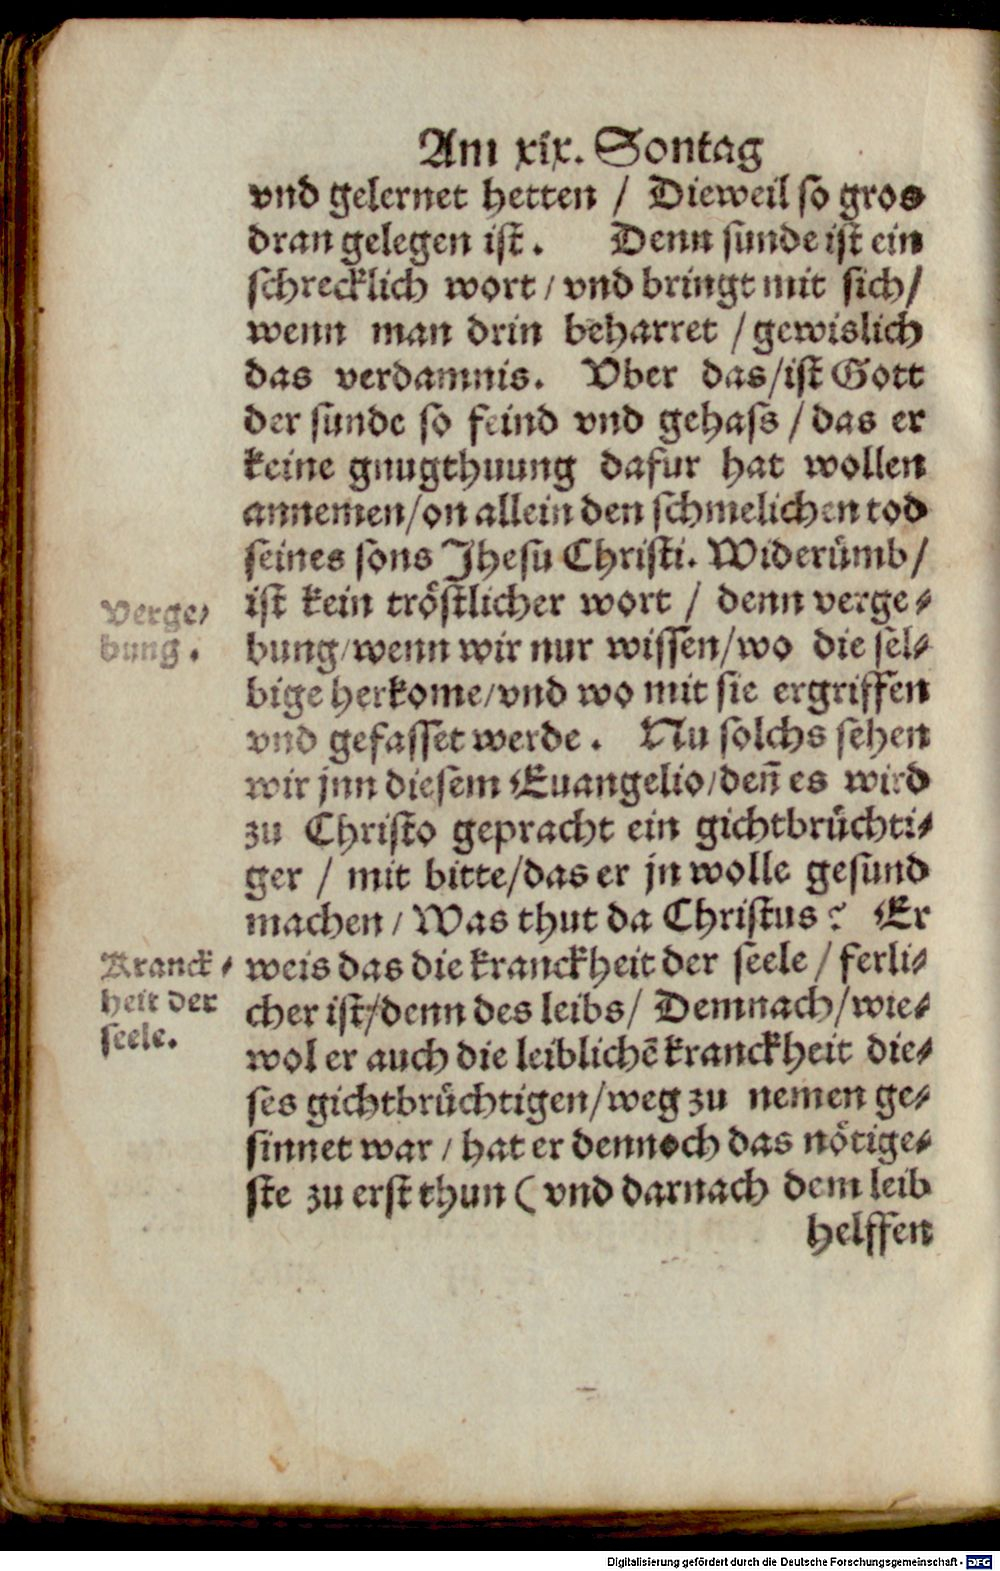 Am xix. Sontag
vnd gelernet hetten / Dieweil so gros
dran gelegen ist. Denn sunde ist ein
schrecklich wort / vnd bringt mit sich /
wenn man drin beharret / gewislich
das verdamnis. Vber das / ist Gott
der sunde so feind vnd gehass / das er
keine gnugthuung dafur hat wollen
annemen / on allein den schmelichen tod
seines sons Jhesu Christi. Widerümb /
Verge⸗
bung.
ist kein tröstlicher wort / denn verge⸗
bung / wenn wir nur wissen / wo die sel⸗
bige herkome / vnd wo mit sie ergriffen
vnd gefasset werde. Nu solchs sehen
wir jnn diesem Euangelio / deñ es wird
zu Christo gepracht ein gichtbrüchti⸗
ger / mit bitte / das er jn wolle gesund
machen / Was thut da Christus? Er
Kranck⸗
heit der
seele.
weis das die kranckheit der seele / ferli⸗
cher ist / denn des leibs / Demnach / wie⸗
wol er auch die leiblichē kranckheit die⸗
ses gichtbrüchtigen / weg zu nemen ge⸗
sinnet war / hat er dennoch das nötige⸗
ste zu erst thun ( vnd darnach dem leib
helffen
Digitalisierung gefördert durch die Deutsche Forschungsgemeinschaft - DFG